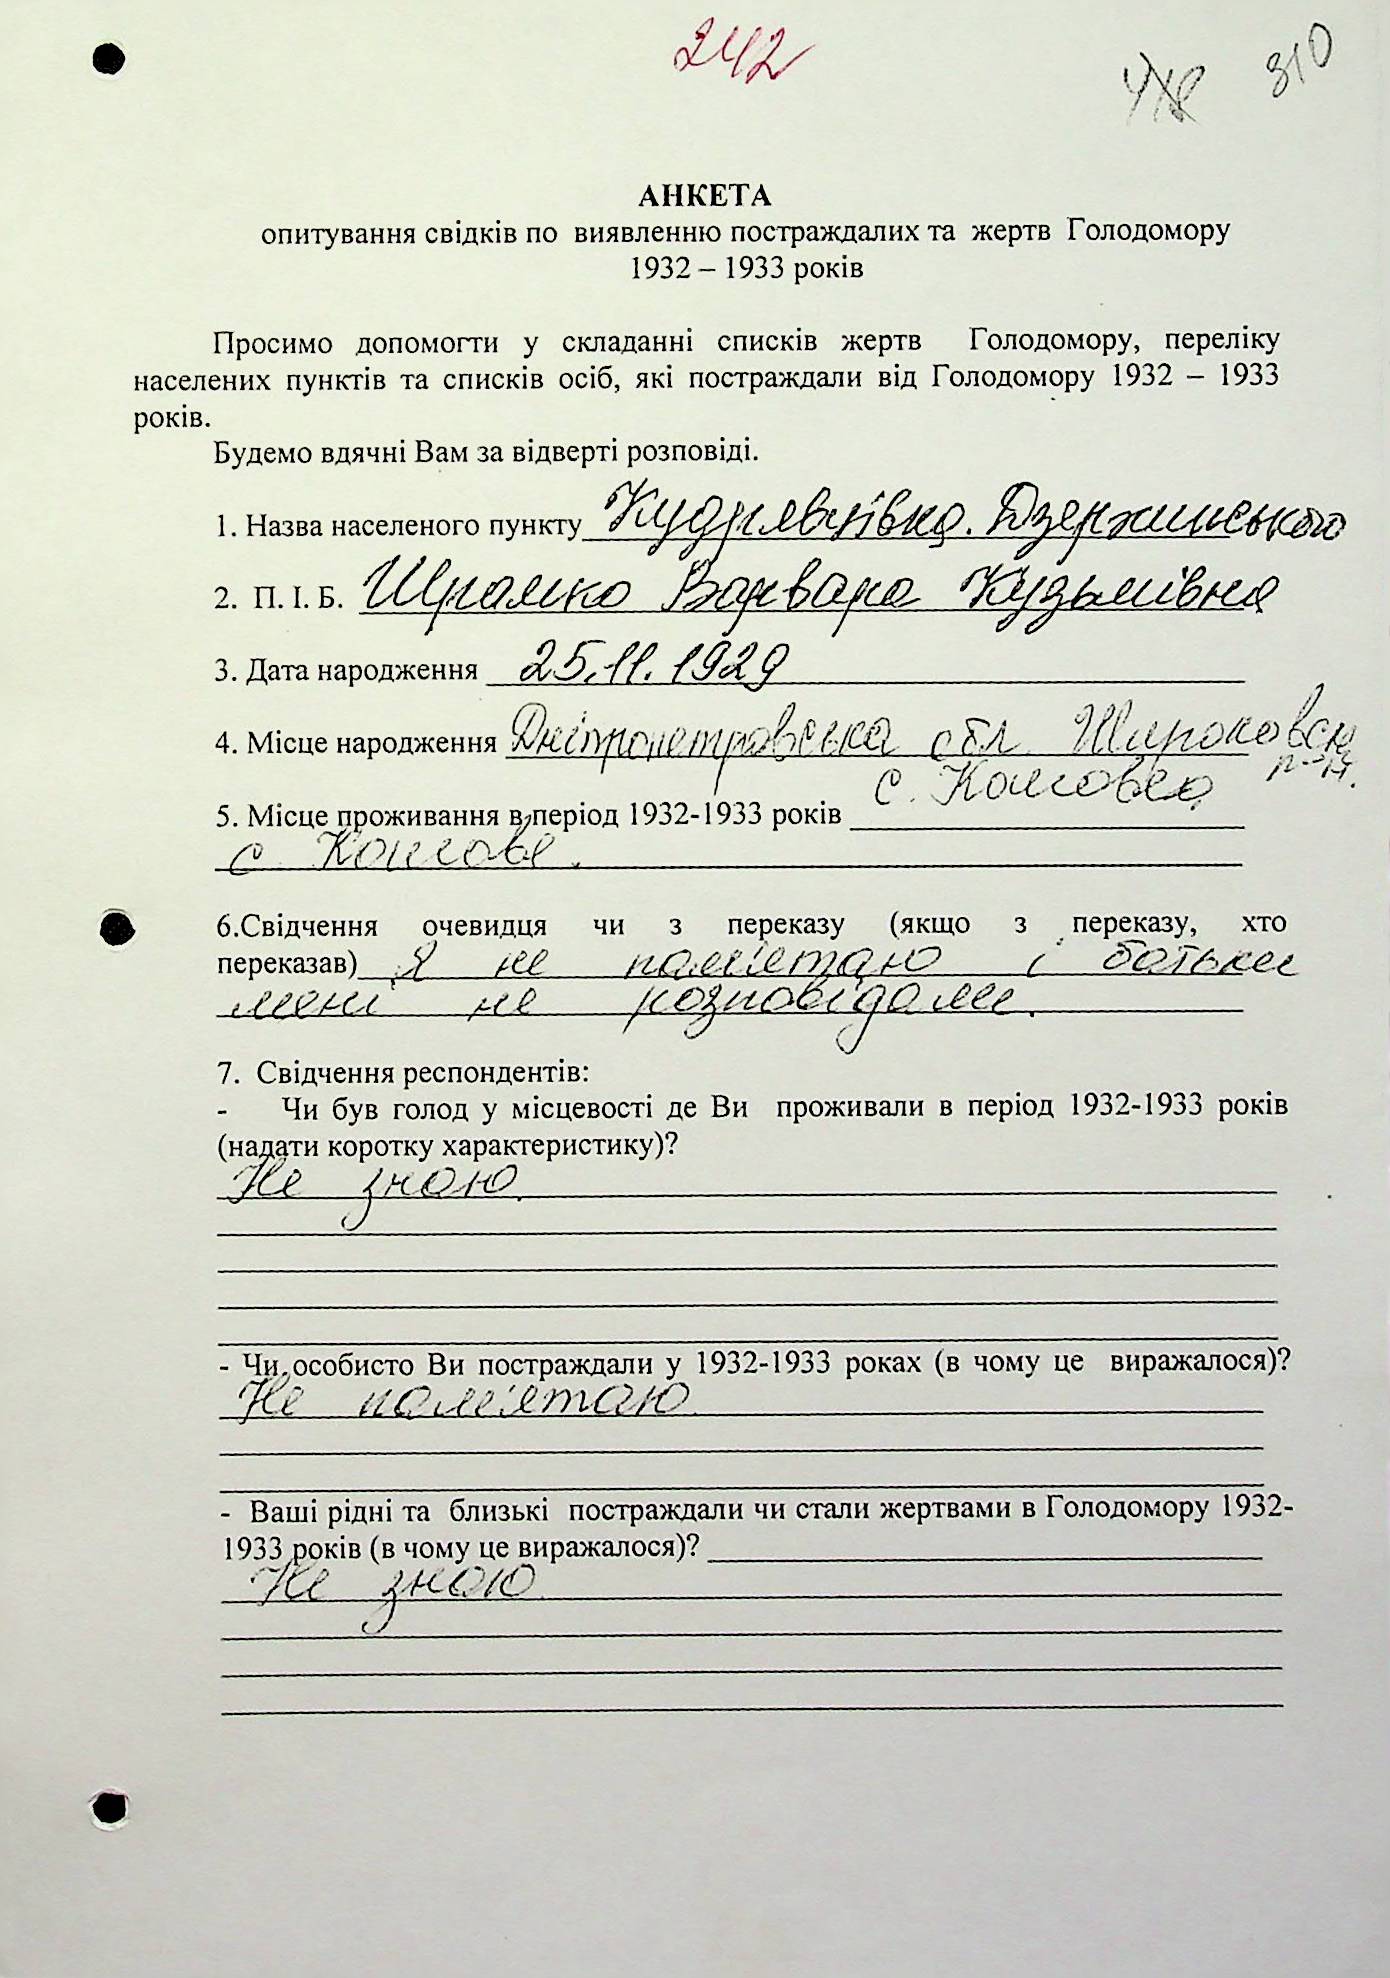 242
310
АНКЕТА
опитування свідків по виявленню постраждалих та жертв Голодомору
1932 – 1933 років
Просимо допомогти у складанні списків жертв Голодомору, переліку
населених пунктів та списків осіб, які постраждали від Голодомору 1932 – 1933
років.
Будемо вдячні Вам за відверті розповіді.
1. Назва населеного пункту Кудрявцівка. Дзержинського
2. П. І. Б. Шрамко Варвара Кузьмівна
3. Дата народження 25.11.1929
4. Місце народження Дніпропетровська обл Широковск
р-н.
с.
5. Місце проживання в період 1932-1933 років
с
6.Свідчення очевидця чи з переказу (якщо з переказу, хто
переказав) Я не пам'ятаю і батьки
мені не розповідали.
7. Свідчення респондентів:
- Чи був голод у місцевості де Ви проживали в період 1932-1933 років
(надати коротку характеристику)?
Не знаю.
- Чи особисто Ви постраждали у 1932-1933 роках (в чому це виражалося)?
Не пам'ятаю
- Ваші рідні та близькі постраждали чи стали жертвами в Голодомору 1932-
1933 років (в чому це виражалося)?
Не знаю